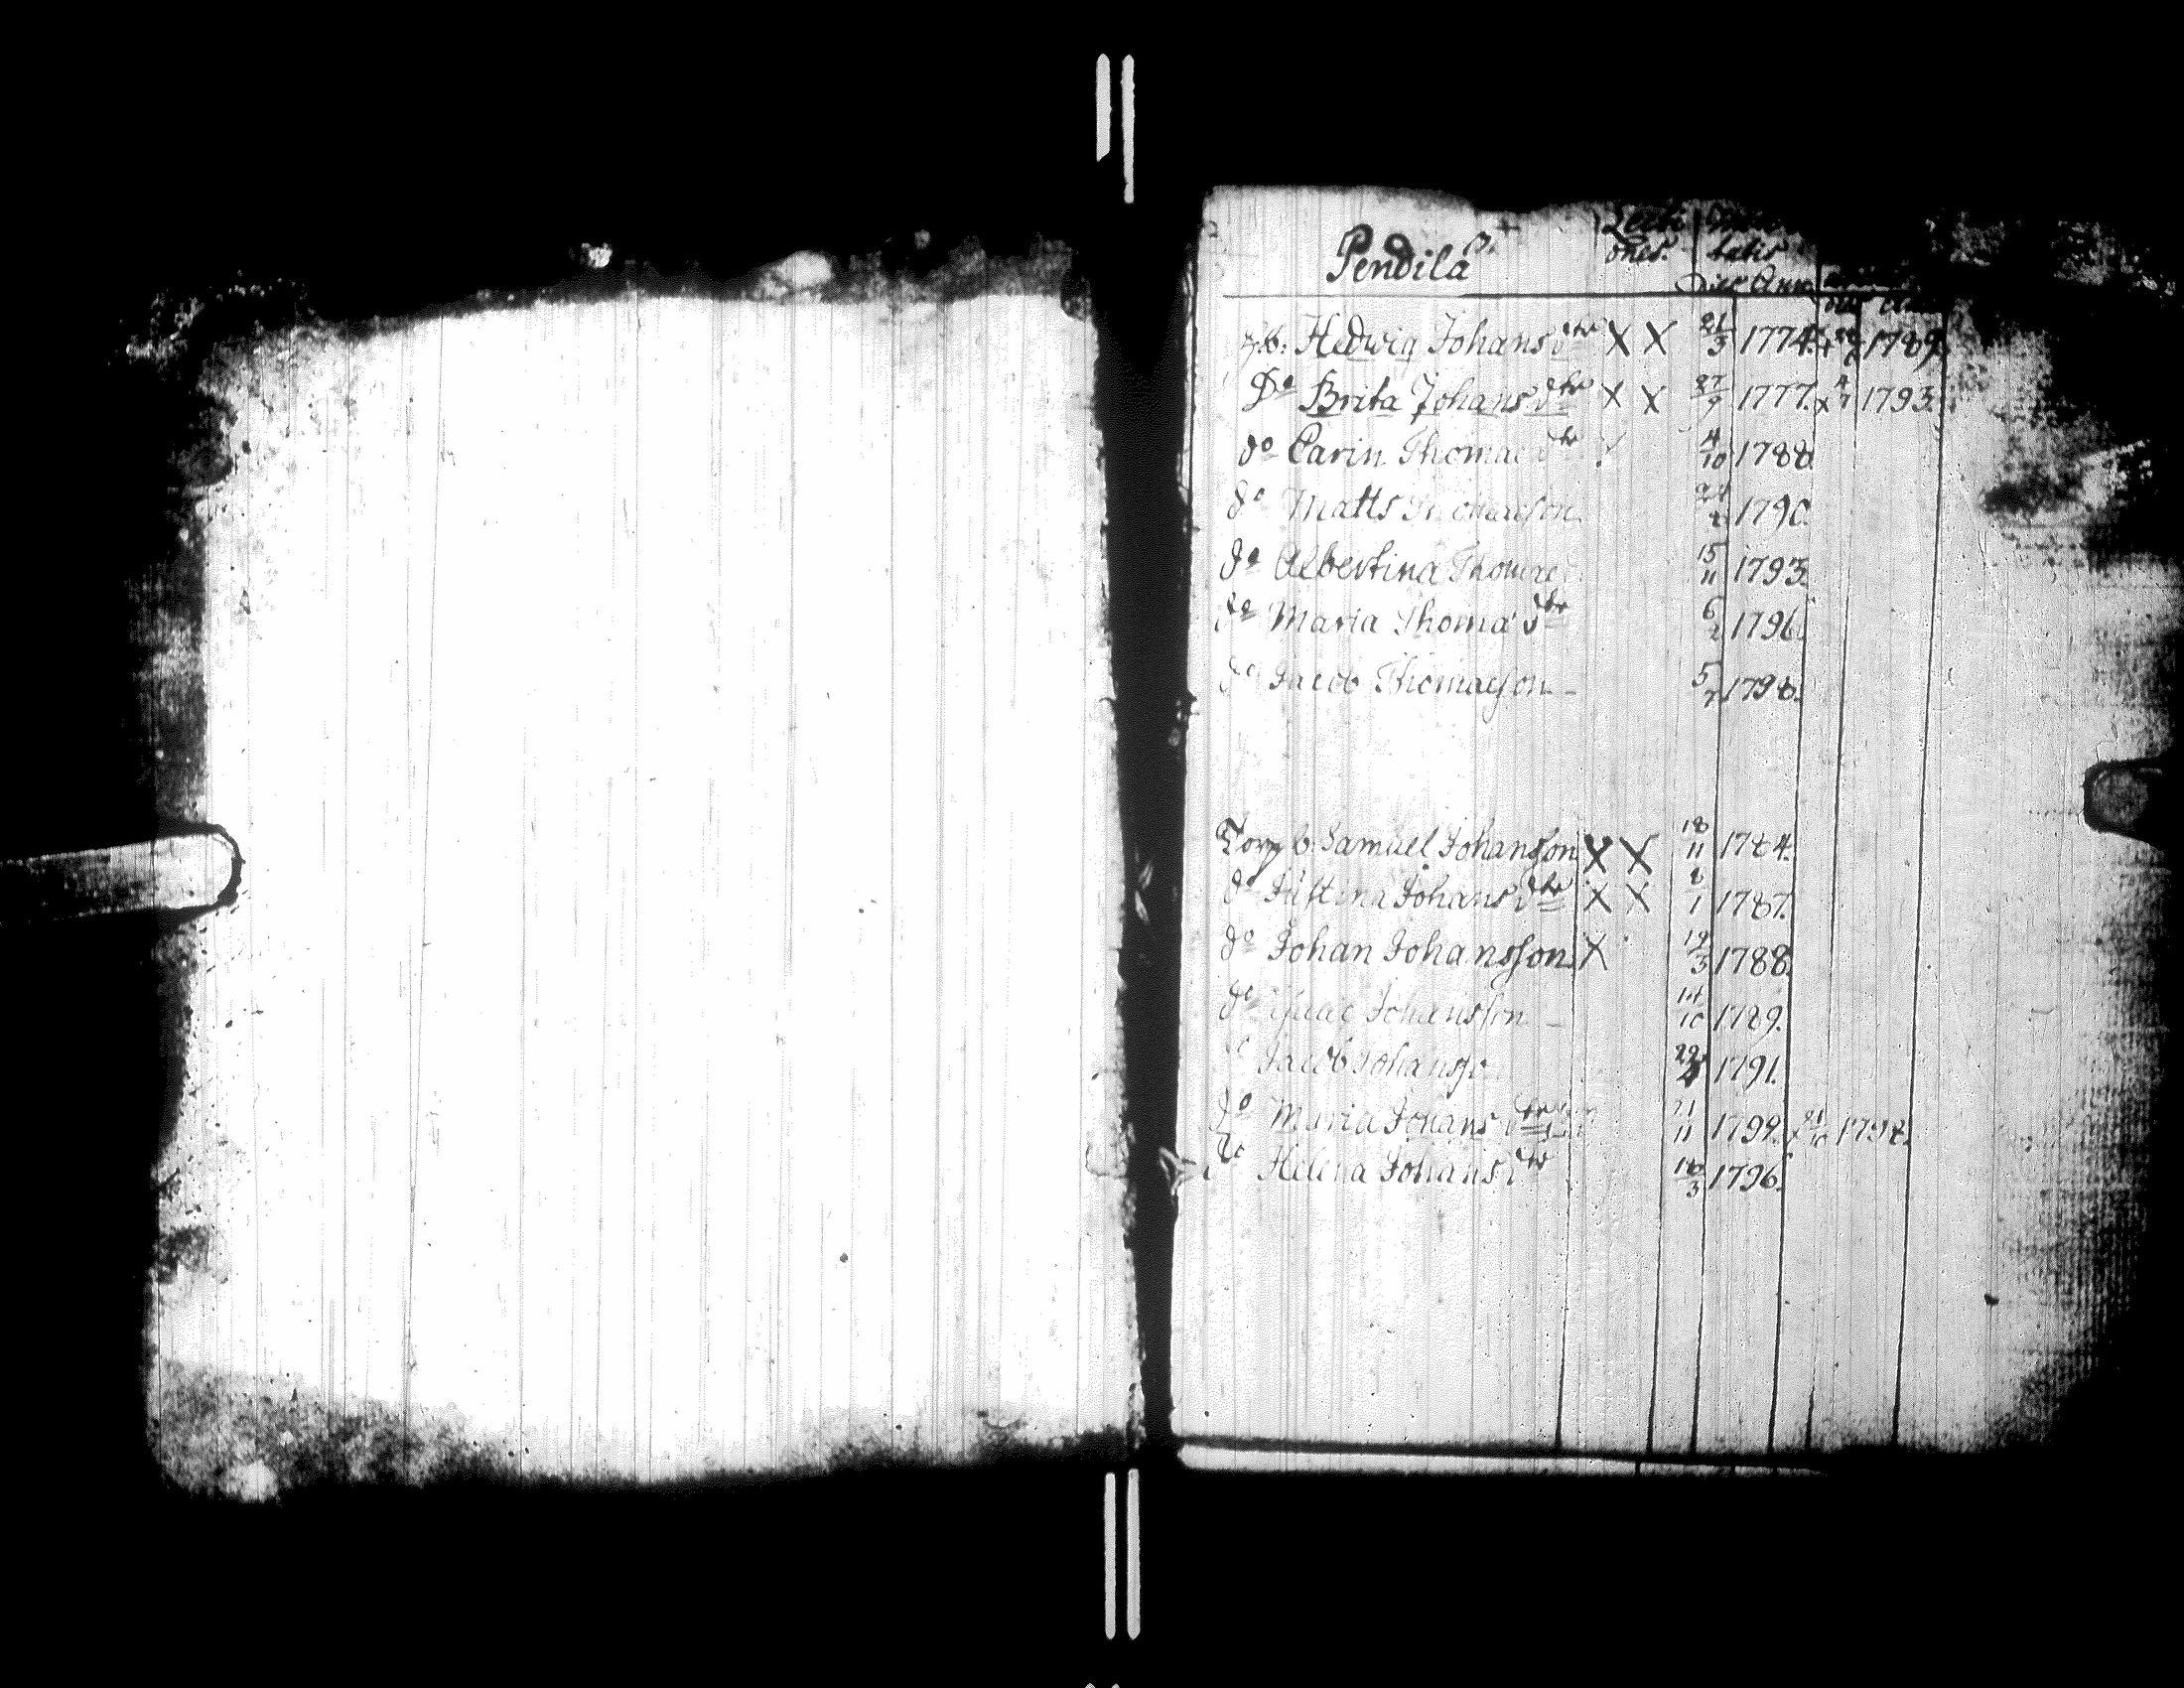 Pendilä
Lecti
ones. tatis
Dies Ann
y.b: Hedwig Johans dhr X X 21/3 1774. 1789.
Do Brita Johans dhr X X 27/9 1777. X 4/7 1793.
do Carin Thomae dhr 4/10 1788.
do Matts Thomasson 1790.
do Albertina Thomae 15/11 1793.
do Maria Thoma dhr 6/2 1796.
do Jacob Thomasson - 5/7 1798.
Torp b. Samuel Johansson X X 18/11 1784.
do Justina Johans dhr X X 8/1 1787.
do Johan Johansson X 19/3 1788.
do Isaac Johansson - 14/10 1789.
Jacob Johansso 1791.
do Maria Johans 21/11
do Helena Johans dhr 18/3 1796.